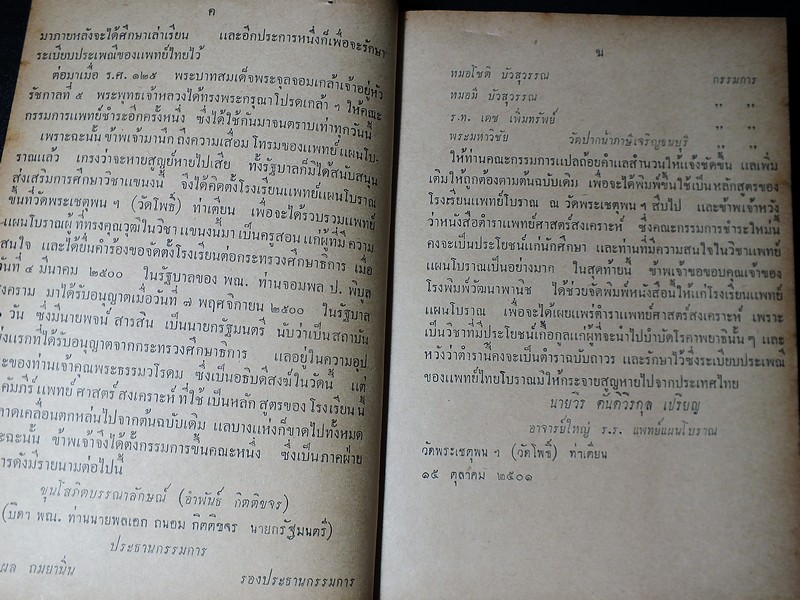 ค
มาภายหลังจะได้ศึกษาเล่าเรียน และอีกประการหนึ่งก็เพื่อจะรักษา
ระเบียบประเพณีของแพทย์ไทยไว้
ต่อมาเมื่อ ร.ศ. ๑๒๕ พระบาทสมเด็จพระจุลจอมเกล้าเจ้าอยู่หัว
รัชกาลที่ ๕ พระพุทธเจ้าหลวงได้ทรงพระกรุณาโปรดเกล้า ฯ ให้คณะ
กรรมการแพทย์ชำระอีกครั้งหนึ่ง ซึ่งได้ใช้กันมาจนตราบเท่าทุกวันนี้
เพราะฉะนั้น ข้าพเจ้ามานึก ถึงความเสื่อมโทรมของแพทย์ แผนโบ-
ราณแล้ว เกรงว่าจะหายสูญย์หายไปเสีย ทั้งรัฐบาลก็มิได้สนับสนุน
ส่งเสริมการศึกษาวิชาแขนงนี้ จึงได้คิดตั้งโรงเรียนแพทย์แผนโบราณ
ขึ้นที่วัดพระเชตุพน ฯ (วัดโพธิ์) ท่าเตียน เพื่อจะได้รวบรวมแพทย์
แผนโบราณผู้ ที่ทรงคุณวุฒิในวิชา แขนงนี้มา เป็นครูสอน แก่ผู้ที่มี ความ
สนใจ และได้ยื่นคำร้องขอจัดตั้งโรงเรียนต่อกระทรวงศึกษาธิการ เมื่อ
วันที่ ๔ มีนาคม ๒๕๐๐ ในรัฐบาลของ พณ. ท่านจอมพล ป. พิบูล
งคราม มาได้รับอนุญาตเมื่อวันที่ ๗ พฤศจิกายน ๒๕๐๐ ในรัฐบาล
๐ วัน ซึ่งมีนายพจน์ สารสิน เป็นนายกรัฐมนตรี นับว่าเป็นสถาบัน
งแรกที่ได้รับอนุญาตจากกระทรวงศึกษาธิการ และอยู่ในความอุป
ะของท่านเจ้าคุณพระธรรมวโรดม ซึ่งเป็นอธิบดีสงฆ์ในวัดนี้ แต่
คัมภีร์ แพทย์ ศาสตร์ สงเคราะห์ ที่ใช้ เป็นหลัก สูตรของ โรงเรียน นี้
าดเคลื่อนตกหล่นไปจากต้นฉบับเดิม แลบางแห่งก็ขาดไปทั้งหมด
ะฉะนั้น ข้าพเจ้าจึงได้ตั้งกรรมการขึ้นคณะหนึ่ง ซึ่งเป็นภาคฝ่าย
ารดังมีรายนามต่อไปนี้
ขุนโสภิตบรรณาลักษณ์ (อำพันธ์ กิตติขจร)
(บิดา พณ. ท่านนายพลเอก ถนอม กิตติขจร นายกรัฐมนตรี)
ประธานกรรมการ
ผล ถมยาพิน รองประธานกรรมการ
ฆ
หมอโชติ บัวสุวรรณ กรรมการ
หมอมิ บัวสุวรรณ ,, ,,
ร.ท. เดช เพิ่มทรัพย์ ,, ,,
พระมหาวิชัย วัดปากน้ำภาษีเจริญธนบุรี ,, ,,
ให้ท่านคณะกรรมการแปลถ้อยคำแลสำนวนให้แจ้งชัดขึ้น แลเพิ่ม
เติมให้ถูกต้องตามต้นฉบับเดิม เพื่อจะได้พิมพ์ขึ้นใช้เป็นหลักสูตรของ
โรงเรียนแพทย์โบราณ ณ วัดพระเชตุพน ฯ สืบไป และข้าพเจ้าหวัง
ว่าหนังสือตำราแพทย์ศาสตร์สงเคราะห์ ซึ่งคณะกรรมการชำระใหม่นี้
คงจะเป็นประโยชน์แก่นักศึกษา และท่านที่มีความสนใจในวิชาแพทย์
แผนโบราณเป็นอย่างมาก ในสุดท้ายนี้ ข้าพเจ้าขอขอบคุณเจ้าของ
โรงพิมพ์วัฒนาพานิช ได้ช่วยจัดพิมพ์หนังสือนี้ให้แก่โรงเรียนแพทย์
แผนโบราณ เพื่อจะได้เผยแพร่ตำราแพทย์ศาสตร์สงเคราะห์ เพราะ
เป็นวิชาที่มีประโยชน์เกื้อกูลแก่ผู้ที่จะนำไปบำบัดโรคาพยาธินั้น ๆ และ
หวังว่าตำรานี้คงจะเป็นตำราฉบับถาวร และรักษาไว้ซึ่งระเบียบประเพณี
ของแพทย์ไทยโบราณมิให้กระจายสูญหายไปจากประเทศไทย
นายวิร คันถวิรกุล เปรียญ
อาจารย์ใหญ่ ร.ร. แพทย์แผนโบราณ
วัดพระเชตุพน ฯ (วัดโพธิ์) ท่าเตียน
๑๕ ตุลาคม ๒๕๐๑